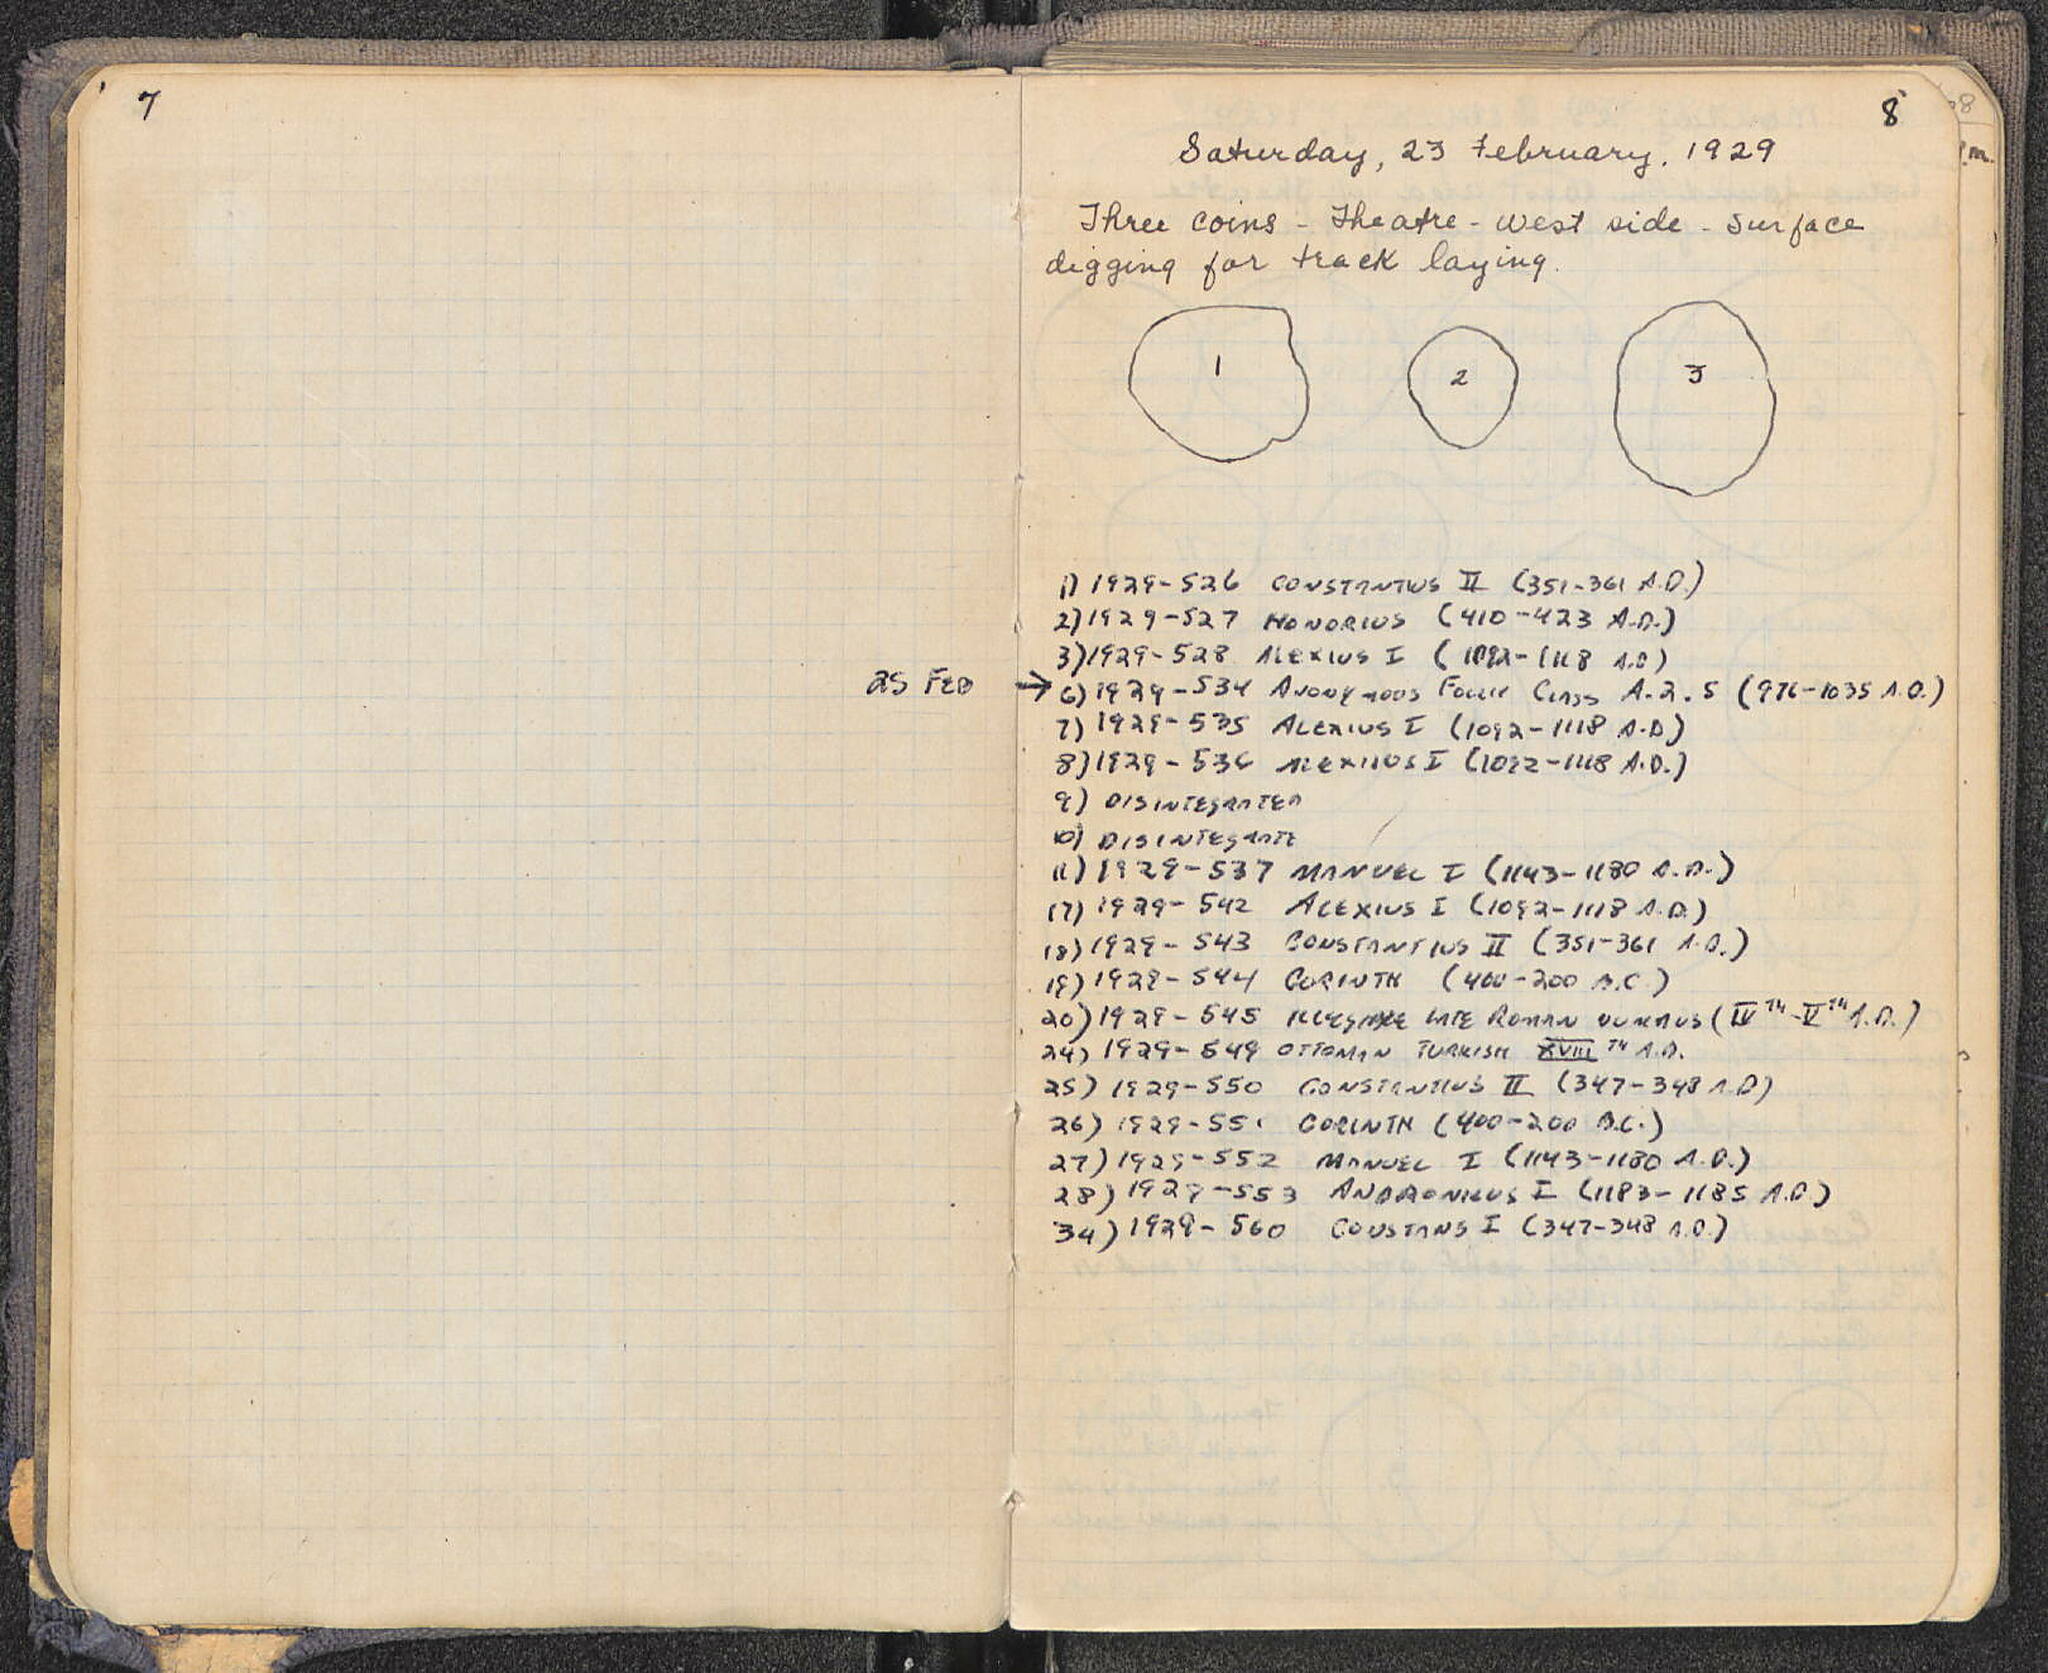 7
8
Saturday, 23 February, 1929
Three coins - Theatre - West side - Surface
digging for track laying.
1
2
3
1) 1929-526 CONSTANTIUS II (351-361 A.D.)
2) 1929-527 HONORIUS (410-423 A.D.)
3) 1929-528 ALEXIUS I (1092-1118 A.D)
25 FEB → 6) 1929-534 ANONYMOUS FOLLIS CLASS A-2.5 (976-1035 A.D.)
7) 1929-535 ALEXIUS I (1092-1118 A.D)
8) 1929-536 ALEXIUS I (1092-1118 A.D.)
9) DISINTEGRATED
10) DISINTEGRATE
11) 1929-537 MANUEL I (1143-1180 A.D.)
17) 1929-542 ALEXIUS I (1092-1118 A.D.)
18) 1929-543 CONSTANTIUS II (351-361 A.D.)
19) 1929-544 CORINTH (400-200 B.C.)
20) 1929-545 LATE ROMAN (IVTH-VTH A.D.)
24) 1929-549 OTTOMAN TURKISH XVIIITH A.D.
25) 1929-550 CONSTANTIUS II (347-348 A.D)
26) 1929-551 CORINTH (400-200 B.C.)
27) 1929-552 MANUEL I (1143-1180 A.D.)
28) 1929-553 ANDRONICUS I (1183-1185 A.D)
34) 1929-560 CONSTANS I (347-348 A.D.)